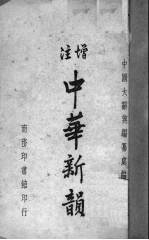 中國大辭典編纂處編
增註
中華新韻
商務印書館印行